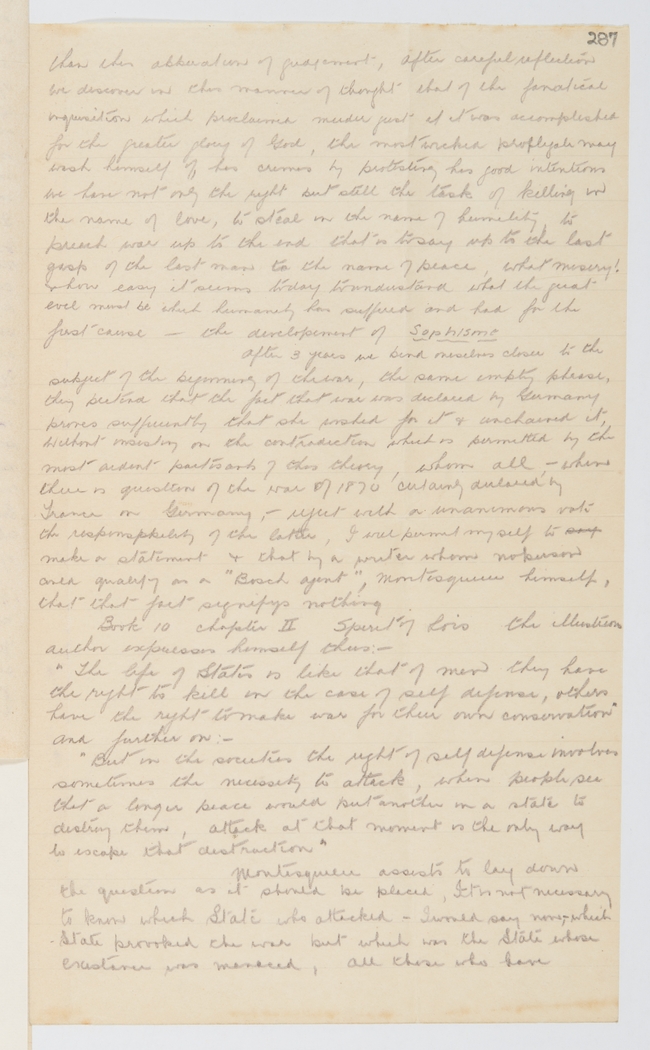 287
than this abberation of judgement, After careful reflection
we discover in this manner of thought that of the fanatical
inquisition which proclaims murder just if it was accomplished
for the greater glory of God, the most wicked profligate may
wash himself of his crimes by protesting his good intentions
we have not only the right but still the task of killing in
the name of love, to steal in the name of humility, to
preech war up to the end that is to say up to the last
gasp of the last man in the name of peace, what misery!
& how easy it seems today to understand what the great
evil must be which humanity has suffered and had for the
first cause — the developement of Sophisme
After 3 years we bind ourselves closer to the
subject of the beginning of the war, the same empty phrase,
they pretend that the fact that war was declared by Germany
proves sufficiently that she wished for it & unchained it,
without insisting on the contradiction which is permitted by the
most ardent partisants of this theory, whom all, - when
there is question of the war of 1870 certainly declared by
France on Germany, - reject with a unanimous vote
the responsibility of the latter, I will permit myself to say
make a statement & that by a writer whom noperson
could qualify as a "Bosch agent", Montesquieu himself,
that that fact signifys nothing
Book 10 chapter II Spirit of Lois the illustrious
author expresses himself thus:-
"The life of States is like that of men they have
the right to kill in the case of self defense, others
have the right to make war for their own conservation"
and further on:-
"But in the societies the right of self defense involves
sometimes the necessity to attack, when people see
that a longer peace would put another in a state to
destroy them, attack at that moment is the only way
to escape that destruction"
Montesquieu assists to lay down
the question as it should be placed, It is not necessary
to know which State who attacked - I would say now,- which
State provoked the war but which was the State whose
existance was menaced, All those who have